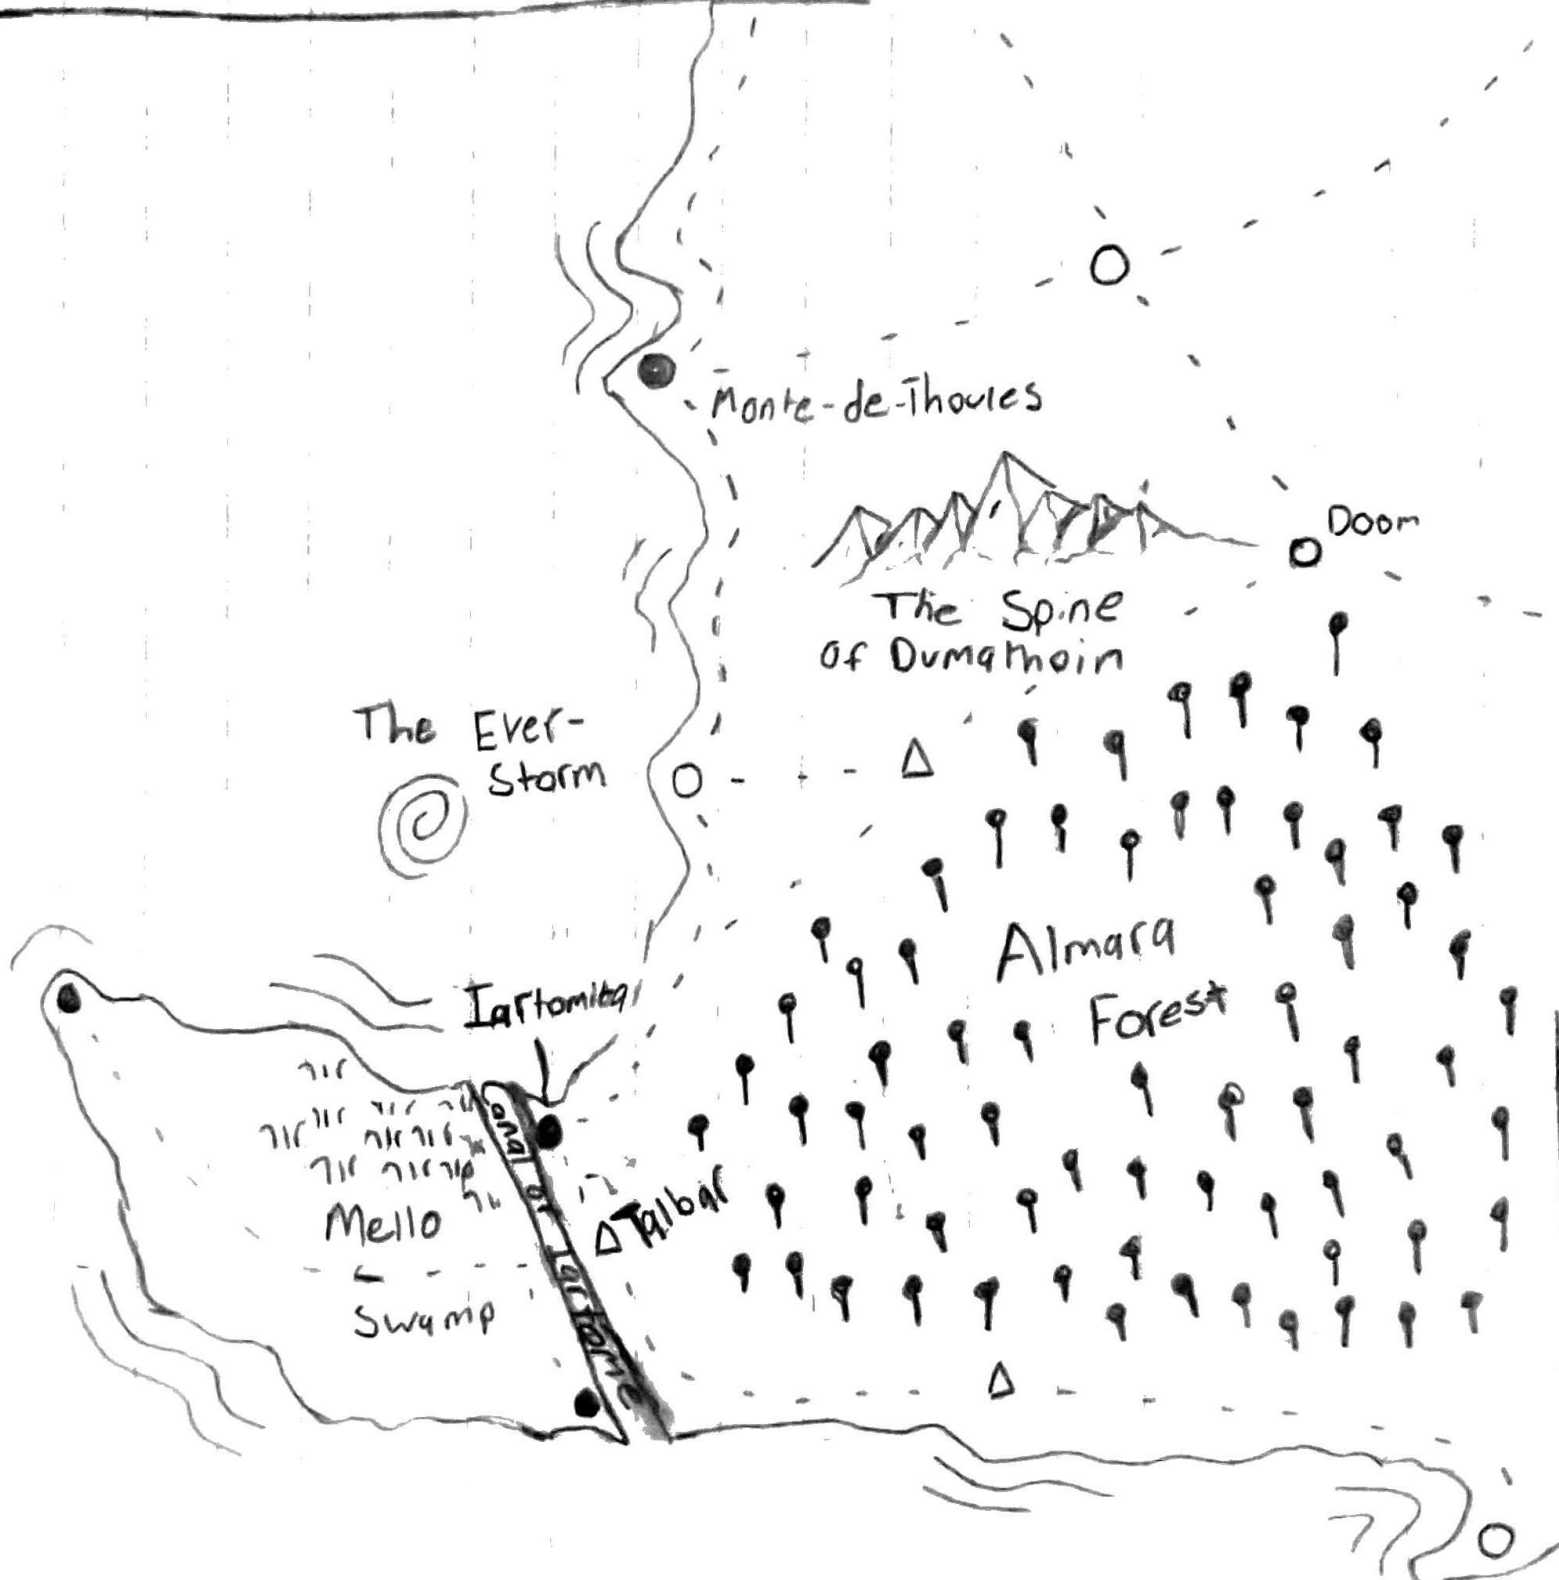 Monte-de-Thoules
Doom
The Spine
of Dumathoin
The Ever-
Storm
Almara
Forest
Iartomita
Canal of Iartome
Talbar
Mello
Swamp